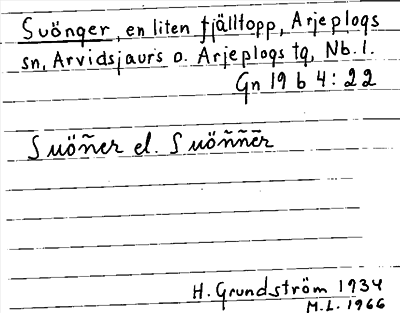 Suönger, en liten fjälltopp, Arjeplogs
sn, Arvidsjaurs o. Arjeplogs tg, Nb. l.
Gn 19 b 4:22
Suöñer el. Suöññēr
H. Grundström 1934
M.L. 1966